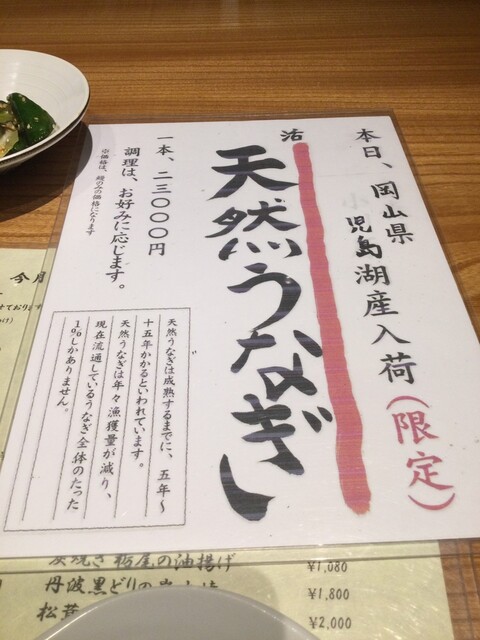 本日、岡山県
児島湖産入荷(限定)
活
天然うなぎ
一本、二三〇〇〇円
調理は、お好みに応じます。
※価格は、鰻のみの価格になります
天然うなぎは成熟するまでに、五年〜
十五年かかるといわれています。
天然うなぎは年々漁獲量が減り、
現在流通しているうなぎ全体のたった
1%しかありません。
今月
せております
炭焼き栃尾の油揚げ ¥1,080
丹波黒どりの ¥1,800
松茸 ¥2,000